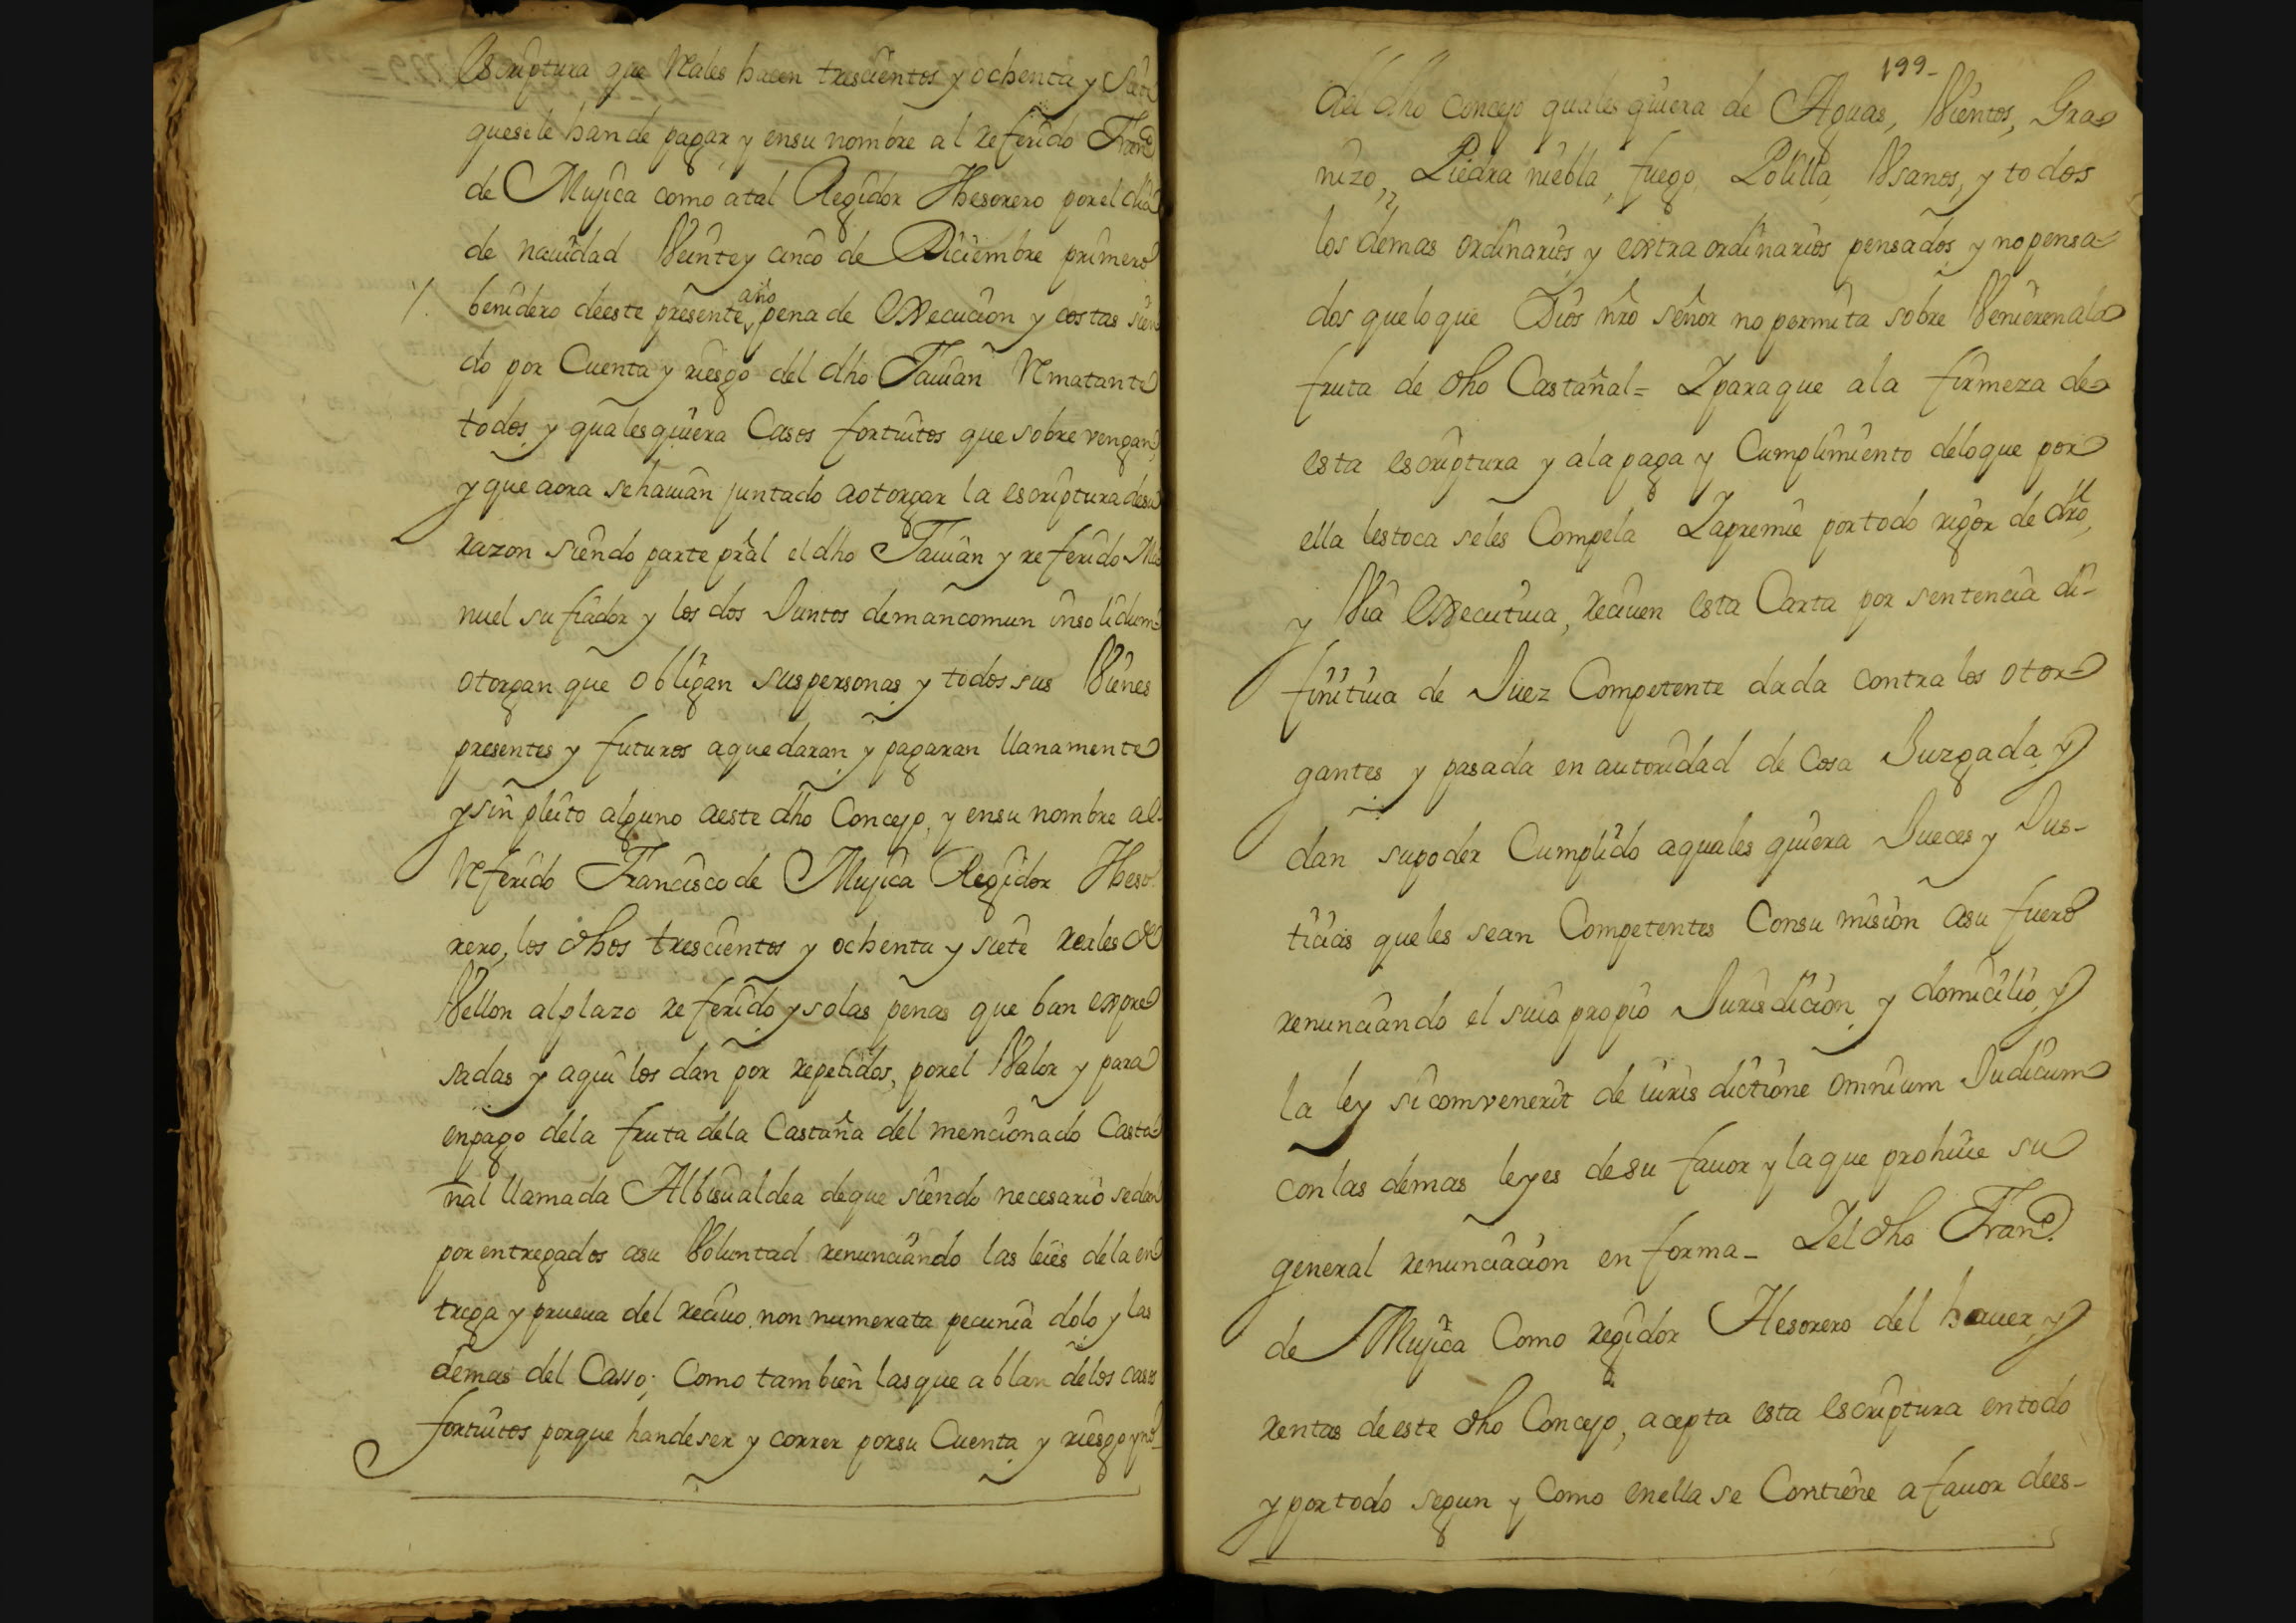 Escriptura que Reales hacen trescientos y ochenta y Siete
quesele hande pagar y ensu nombre al referido Franco
de Mujica como atal Regidor Thesorero porel dia
de nauidad Veintey cinco de Diciembre primero
1. benidero deeste presente año pena de Execucion y costas sien
do por Cuenta y riesgo del dho Jauian Rematante
todos y qualesquiera Casos fortuitos que sobrevengan,
y que aora sehauian juntado aotorgar la escriptura desu
razon siendo parte pral el dho Jauian y referido Ma
nuel su fiador y los dos Juntos demancomun insolidum
otorgan que obligan suspersonas y todos sus Vienes
presentes y futuros aquedaran y pagaran llanamente
ysin pleito alguno aeste dho Concejo, y ensu nombre al
Referido Francisco de Mujica Regidor Theso
rero, los dhos trescientos y ochenta y siete reales de
Vellon alplazo referido y solas penas que ban expre
sadas y aqui los dan por repetidos, porel Valor y para
enpago dela fruta dela Castaña del mencionado Casta
ñal llamada Albisualdea deque siendo necesario sedan
por entregados asu Voluntad renunciando las leies dela en
trega y prueua del reciuo, non numerata pecunia dolo y las
demas del Casso; Como tambien lasque ablan delos casos
fortuitos porque handeser y correr porsu Cuenta y riesgo y no
199-
del dho concejo qualesquiera de Aguas, Vientos, Gra
nizo, Piedra niebla, fuego, Polilla, Vsanos, y todos
los demas ordinarios y extraordinarios pensados y nopensa-
dos queloque Dios nro señor no permita sobre Venierenala
fruta de dho Castañal= Yparaque ala firmeza de
esta escriptura y alapaga y Cumplimiento deloque por
ella lestoca seles Compela Yapremie portodo rigor de dro,
y Via Executiua, reciuen esta Carta por sentencia di-
finitiua de Juez Competente dada contra los otor-
gantes y pasada en autoridad de Cosa Juzgada, y
dan supoder Cumplido aquales quiera Jueces y Jus-
ticias queles sean Competentes Consu mision asu fuero
renunciando el suio propio Jurisdicion, y domicilio, y
la ley sicomvenerit de iuris dictione omnium Judicum
conlas demas leyes desu fauor ylaque prohiue su
general renunciacion en forma- Yel dho Franco.
de Mujica Como regidor Thesorero del hauer y
rentas deeste dho Concejo, acepta esta escriptura entodo
y portodo segun y Como enella se Contiene afauor dees-